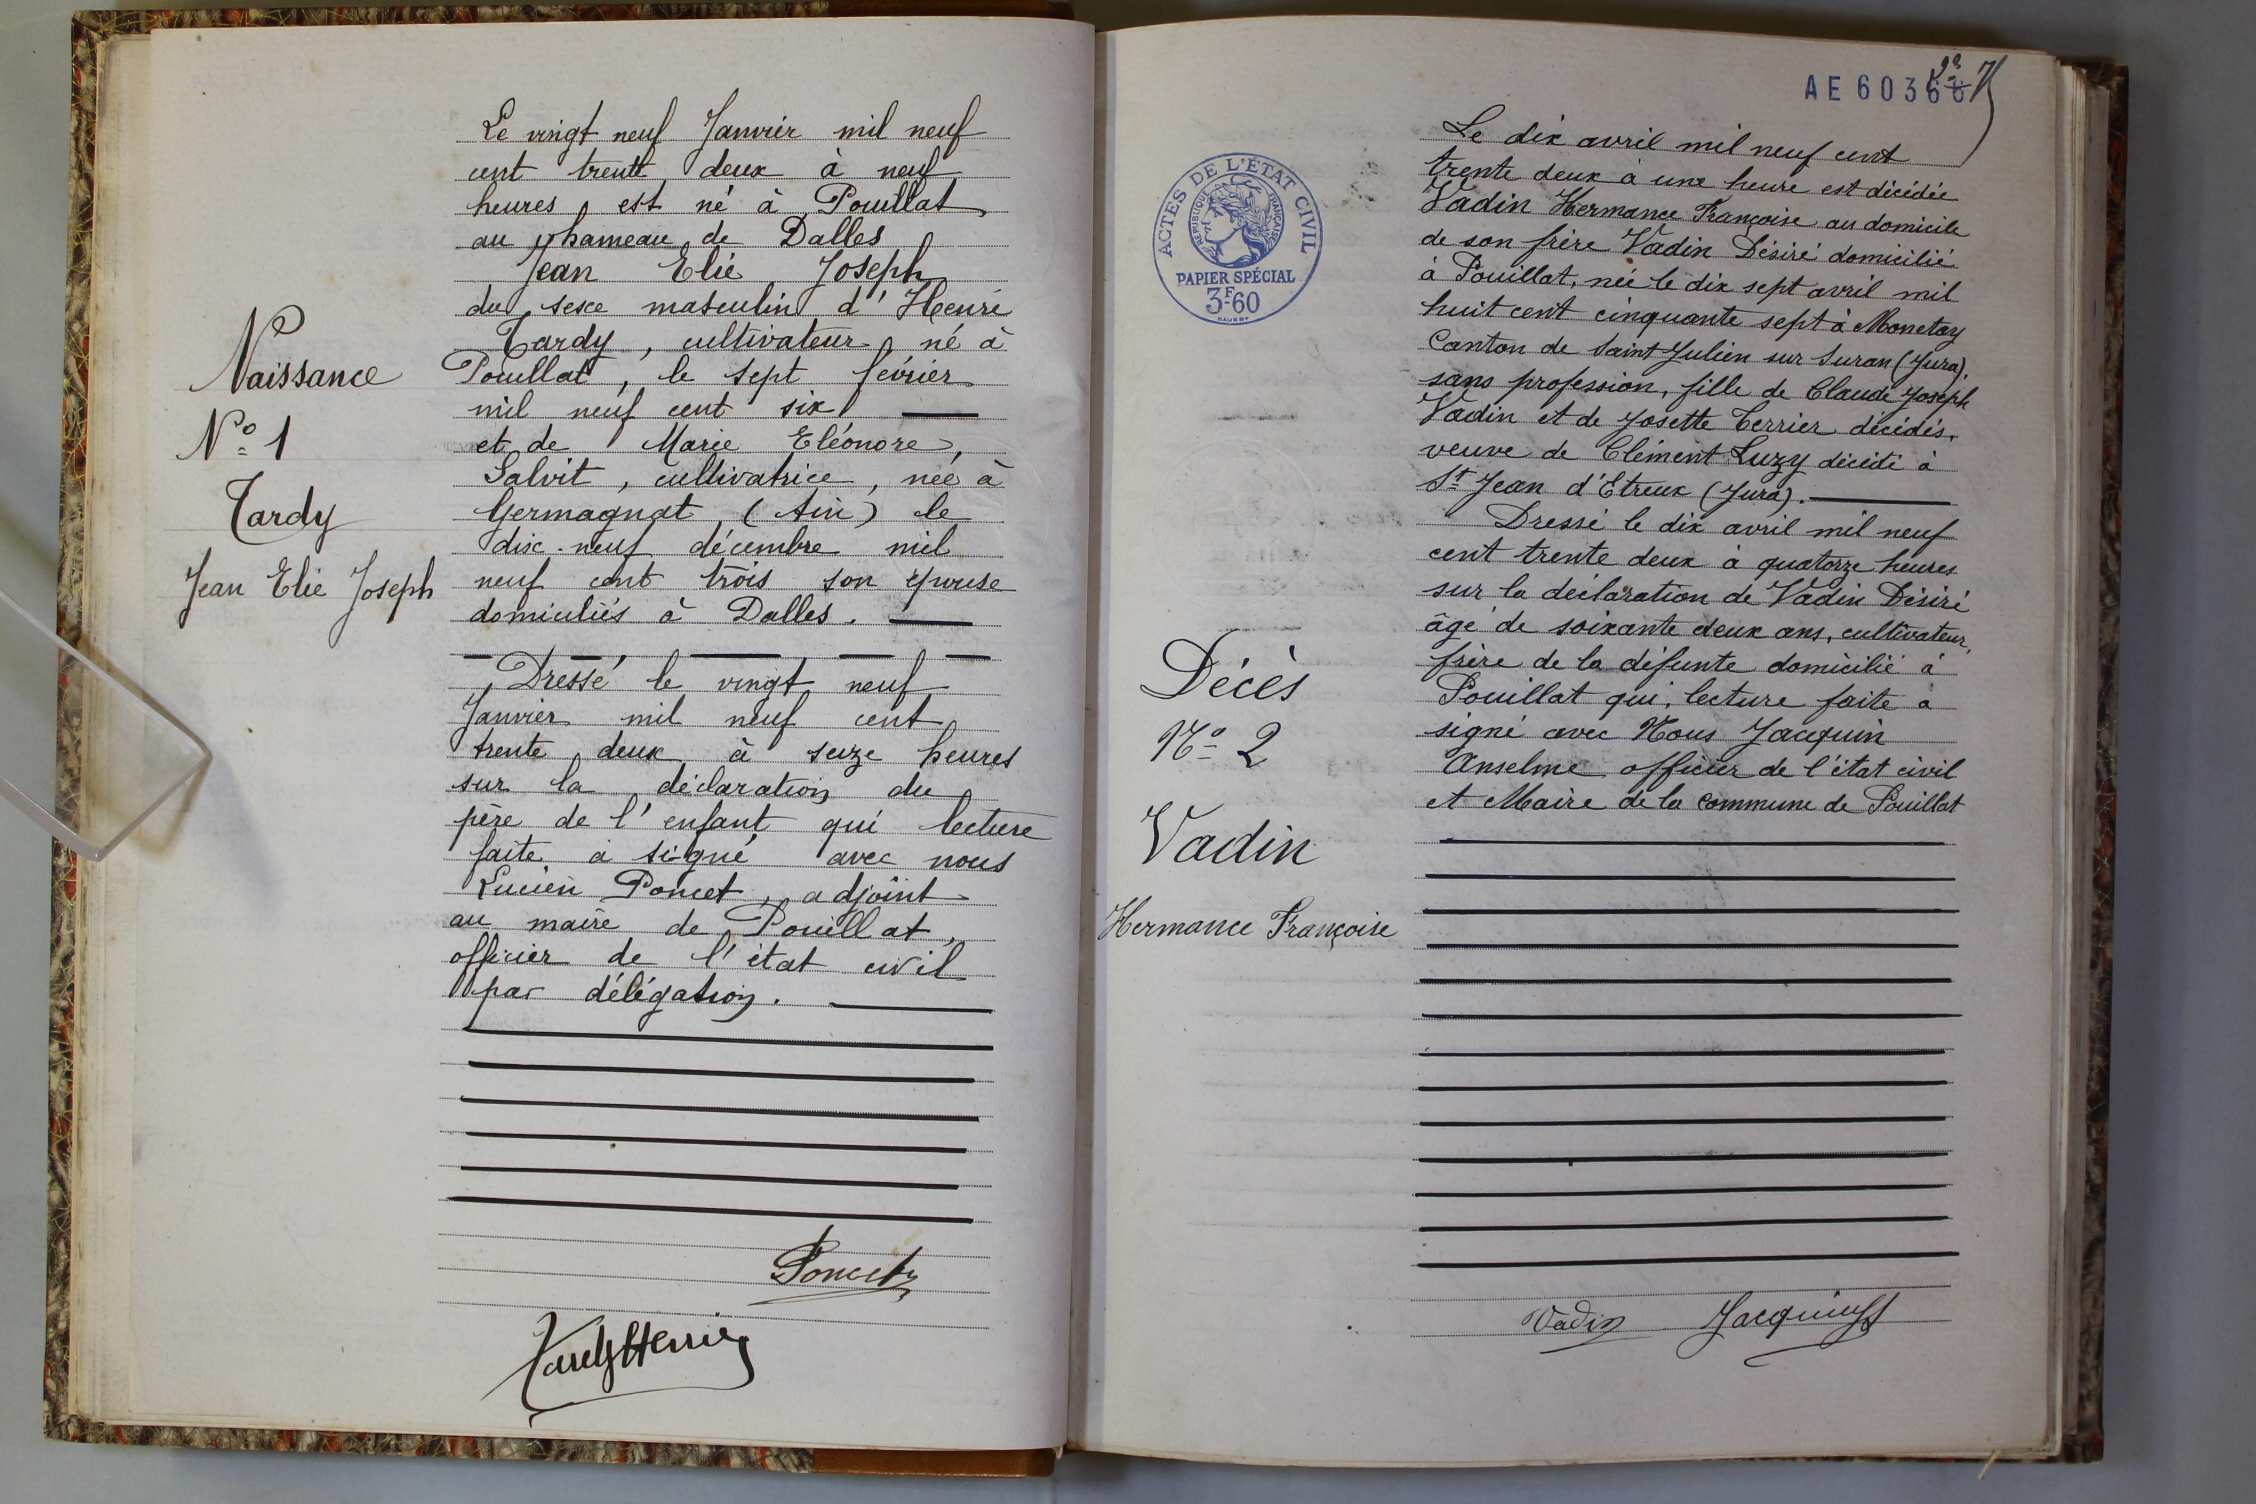 Naissance
N° 1
Tardy
Jean Elie Joseph
Le vingt neuf Janvier mil neuf
cent trente deux à neuf
heures est né à Pouillat
au hameau de Dalles
Jean Elie Joseph
du sexe masculin d'Henri
Tardy, cultivateur né à
Pouillat, le sept février
mil neuf cent six
et de Marie Eléonore,
Salvit, cultivatrice, née à
Germagnat (Ain) le
dix-neuf décembre mil
neuf cent trois son épouse
domiciliés à Dalles.
Dressé le vingt neuf
Janvier mil neuf cent
trente deux à seize heures
sur la déclaration du
père de l'enfant qui lecture
faite a signé avec nous
Lucien Poncet, adjoint
au maire de Pouillat,
officier de l'état civil
par délégation.
Poncet
Tardy Henri
AE 6036
ACTES DE L'ÉTAT CIVIL
RÉPUBLIQUE FRANÇAISE
PAPIER SPÉCIAL
3F-60
Décès
N° 2
Vadin
Hermance Françoise
Le dix avril mil neuf cent
trente deux à une heure est décédée
Vadin Hermance Françoise au domicile
de son frère Vadin Désiré domicilié
à Pouillat, née le dix sept avril mil
huit cent cinquante sept à Monetay
Canton de Saint Julien sur Suran (Jura).
sans profession, fille de Claude Joseph
Vadin et de Josette Terrier décédés,
veuve de Clément Luzy décédé à
St Jean d'Etreux (Jura).
Dressé le dix avril mil neuf
cent trente deux à quatorze heures
sur la déclaration de Vadin Désiré
âgé de soixante deux ans, cultivateur,
frère de la défunte domicilié à
Pouillat qui, lecture faite a
signé avec Nous Jacquin
Anselme officier de l'état civil
et Maire de la commune de Pouillat
Vadin Jacquin